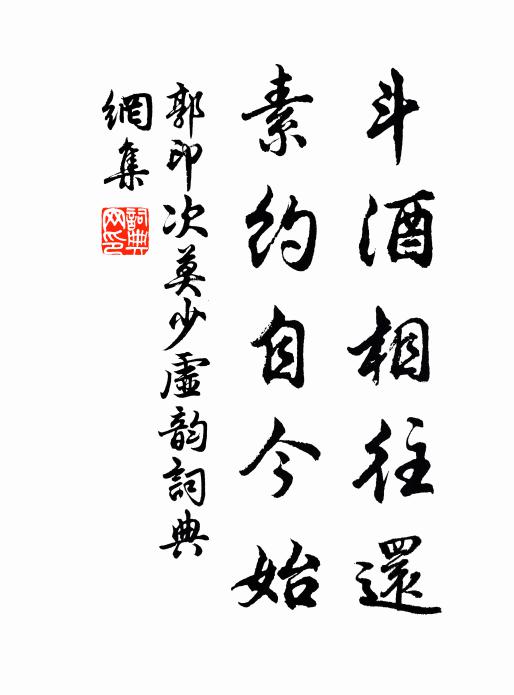 斗酒相往還
素約自今始
郭印次莫少虛韵詞典
網集
詞典
网印